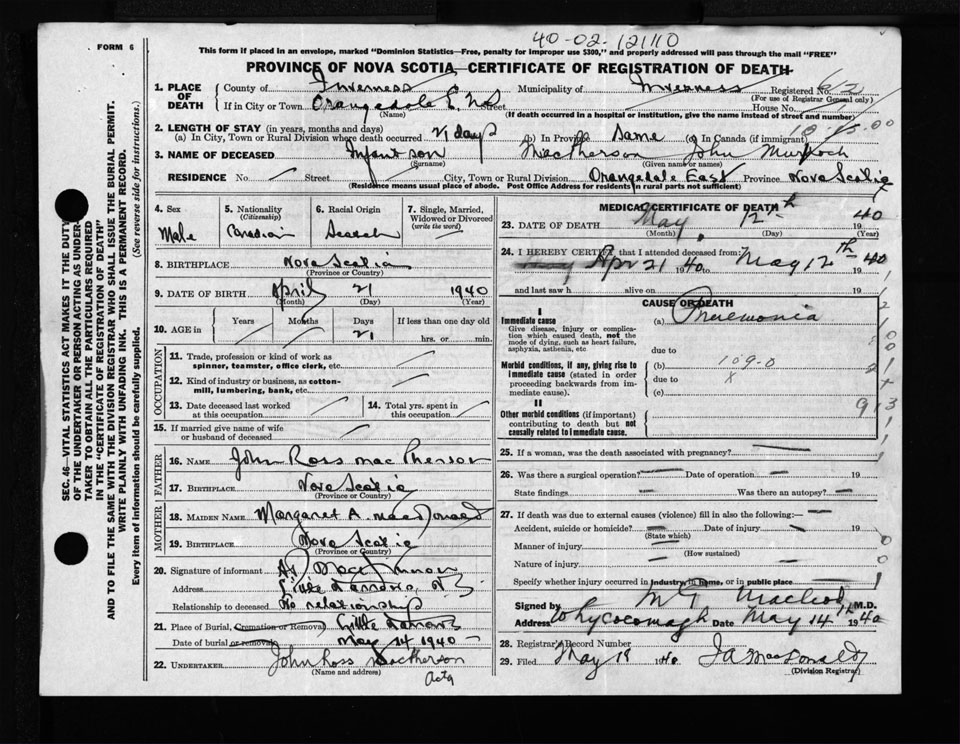 40-02-12110
FORM 6
This form if placed in an envelope, marked "Dominion Statistics—Free, penalty for improper use $300," and properly addressed will pass through the mail "FREE"
PROVINCE OF NOVA SCOTIA—CERTIFICATE OF REGISTRATION OF DEATH
1. PLACE OF DEATH
County of Inverness Municipality of Inverness Registered No.
(For use of Registrar General only)
If in City or Town Orangedale E. N.S. Street House No.
(Name) (If death occurred in a hospital or institution, give the name instead of street and number)
2. LENGTH OF STAY (in years, months and days)
(a) In City, Town or Rural Division where death occurred 21 days (b) In Province Same (c) In Canada (if immigrant)
3. NAME OF DECEASED Infant son MacPherson John Murdoch
(Surname) (Given name or names)
RESIDENCE No. Street City, Town or Rural Division Orangedale East Province Nova Scotia
(Residence means usual place of abode. Post Office Address for residents in rural parts not sufficient)
4. Sex Male
5. Nationality (Citizenship) Canadian
6. Racial Origin Scotch
7. Single, Married, Widowed or Divorced (write the word)
8. BIRTHPLACE Nova Scotia
(Province or Country)
9. DATE OF BIRTH April 21 1940
(Month) (Day) (Year)
10. AGE in Years Months Days 21 If less than one day old hrs. or min.
OCCUPATION
11. Trade, profession or kind of work as spinner, teamster, office clerk, etc.
12. Kind of industry or business, as cotton-mill, lumbering, bank, etc.
13. Date deceased last worked at this occupation
14. Total yrs. spent in this occupation
15. If married give name of wife or husband of deceased
FATHER
16. NAME John Ross MacPherson
17. BIRTHPLACE Nova Scotia
(Province or Country)
MOTHER
18. MAIDEN NAME Margaret A. MacDonald
19. BIRTHPLACE Nova Scotia
(Province or Country)
20. Signature of informant
Address Little Narrows, N.S.
Relationship to deceased No relationship
21. Place of Burial, Cremation or Removal Little Narrows
Date of burial or removal May 14 1940
22. UNDERTAKER John Ross MacPherson
(Name and address)
MEDICAL CERTIFICATE OF DEATH
23. DATE OF DEATH May 12th 1940
(Month) (Day) (Year)
24. I HEREBY CERTIFY that I attended deceased from:
Apr 21 1940 to May 12th 1940
and last saw h alive on 19
CAUSE OF DEATH
I
Immediate cause
Give disease, injury or complication which caused death, not the mode of dying, such as heart failure, asphyxia, asthenia, etc
(a) Pneumonia
due to
Morbid conditions, if any, giving rise to immediate cause (stated in order proceeding backwards from immediate cause).
(b) 109-0
due to
(c)
II
Other morbid conditions (if important) contributing to death but not causally related to immediate cause.
25. If a woman, was the death associated with pregnancy?
26. Was there a surgical operation? Date of operation 19
State findings Was there an autopsy?
27. If death was due to external causes (violence) fill in also the following:—
Accident, suicide or homicide? Date of injury 19
(State which)
Manner of injury
(How sustained)
Nature of injury
Specify whether injury occurred in Industry, in home, or in public place
Signed by M G MacLeod M.D.
Address Whycocomagh Date May 14th 1940
28. Registrar's Record Number
29. Filed May 18 1940 J A MacDonald
(Division Registrar)
SEC. 46—VITAL STATISTICS ACT MAKES IT THE DUTY
OF THE UNDERTAKER OR PERSON ACTING AS UNDER-
TAKER TO OBTAIN ALL THE PARTICULARS REQUIRED
IN THE "CERTIFICATE OF REGISTRATION OF DEATH"
AND TO FILE THE SAME WITH THE DIVISION REGISTRAR WHO SHALL ISSUE THE BURIAL PERMIT.
WRITE PLAINLY WITH UNFADING INK. THIS IS A PERMANENT RECORD.
Every item of information should be carefully supplied. (See reverse side for instructions.)